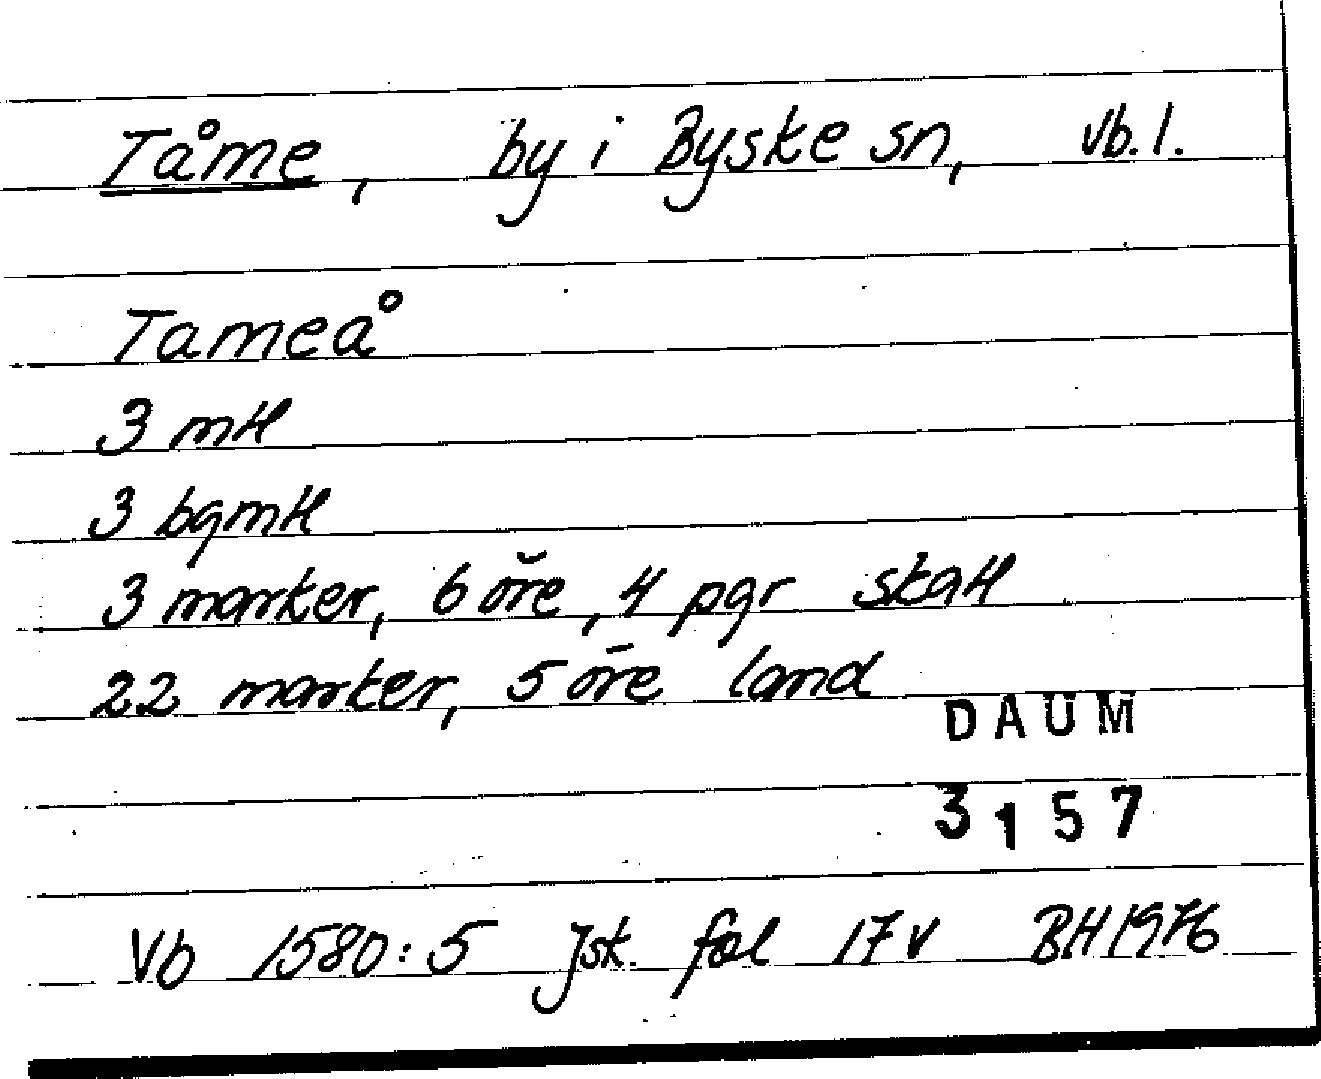 Tåme, by i Byske sn, Vb.l.
Tameå
3 mtl
3 bgmtl
3 marker, 6 öre, 4 pgr skatt
22 marker, 5 öre land
DAUM
3157
Vb 1580:5 Jsk. fol 17v BH 1976